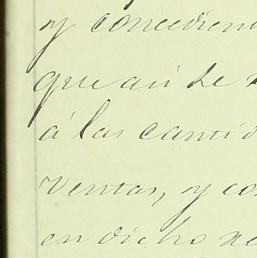 y concedien
que asi de
á las cantid
ventas, y co
en dicho ne